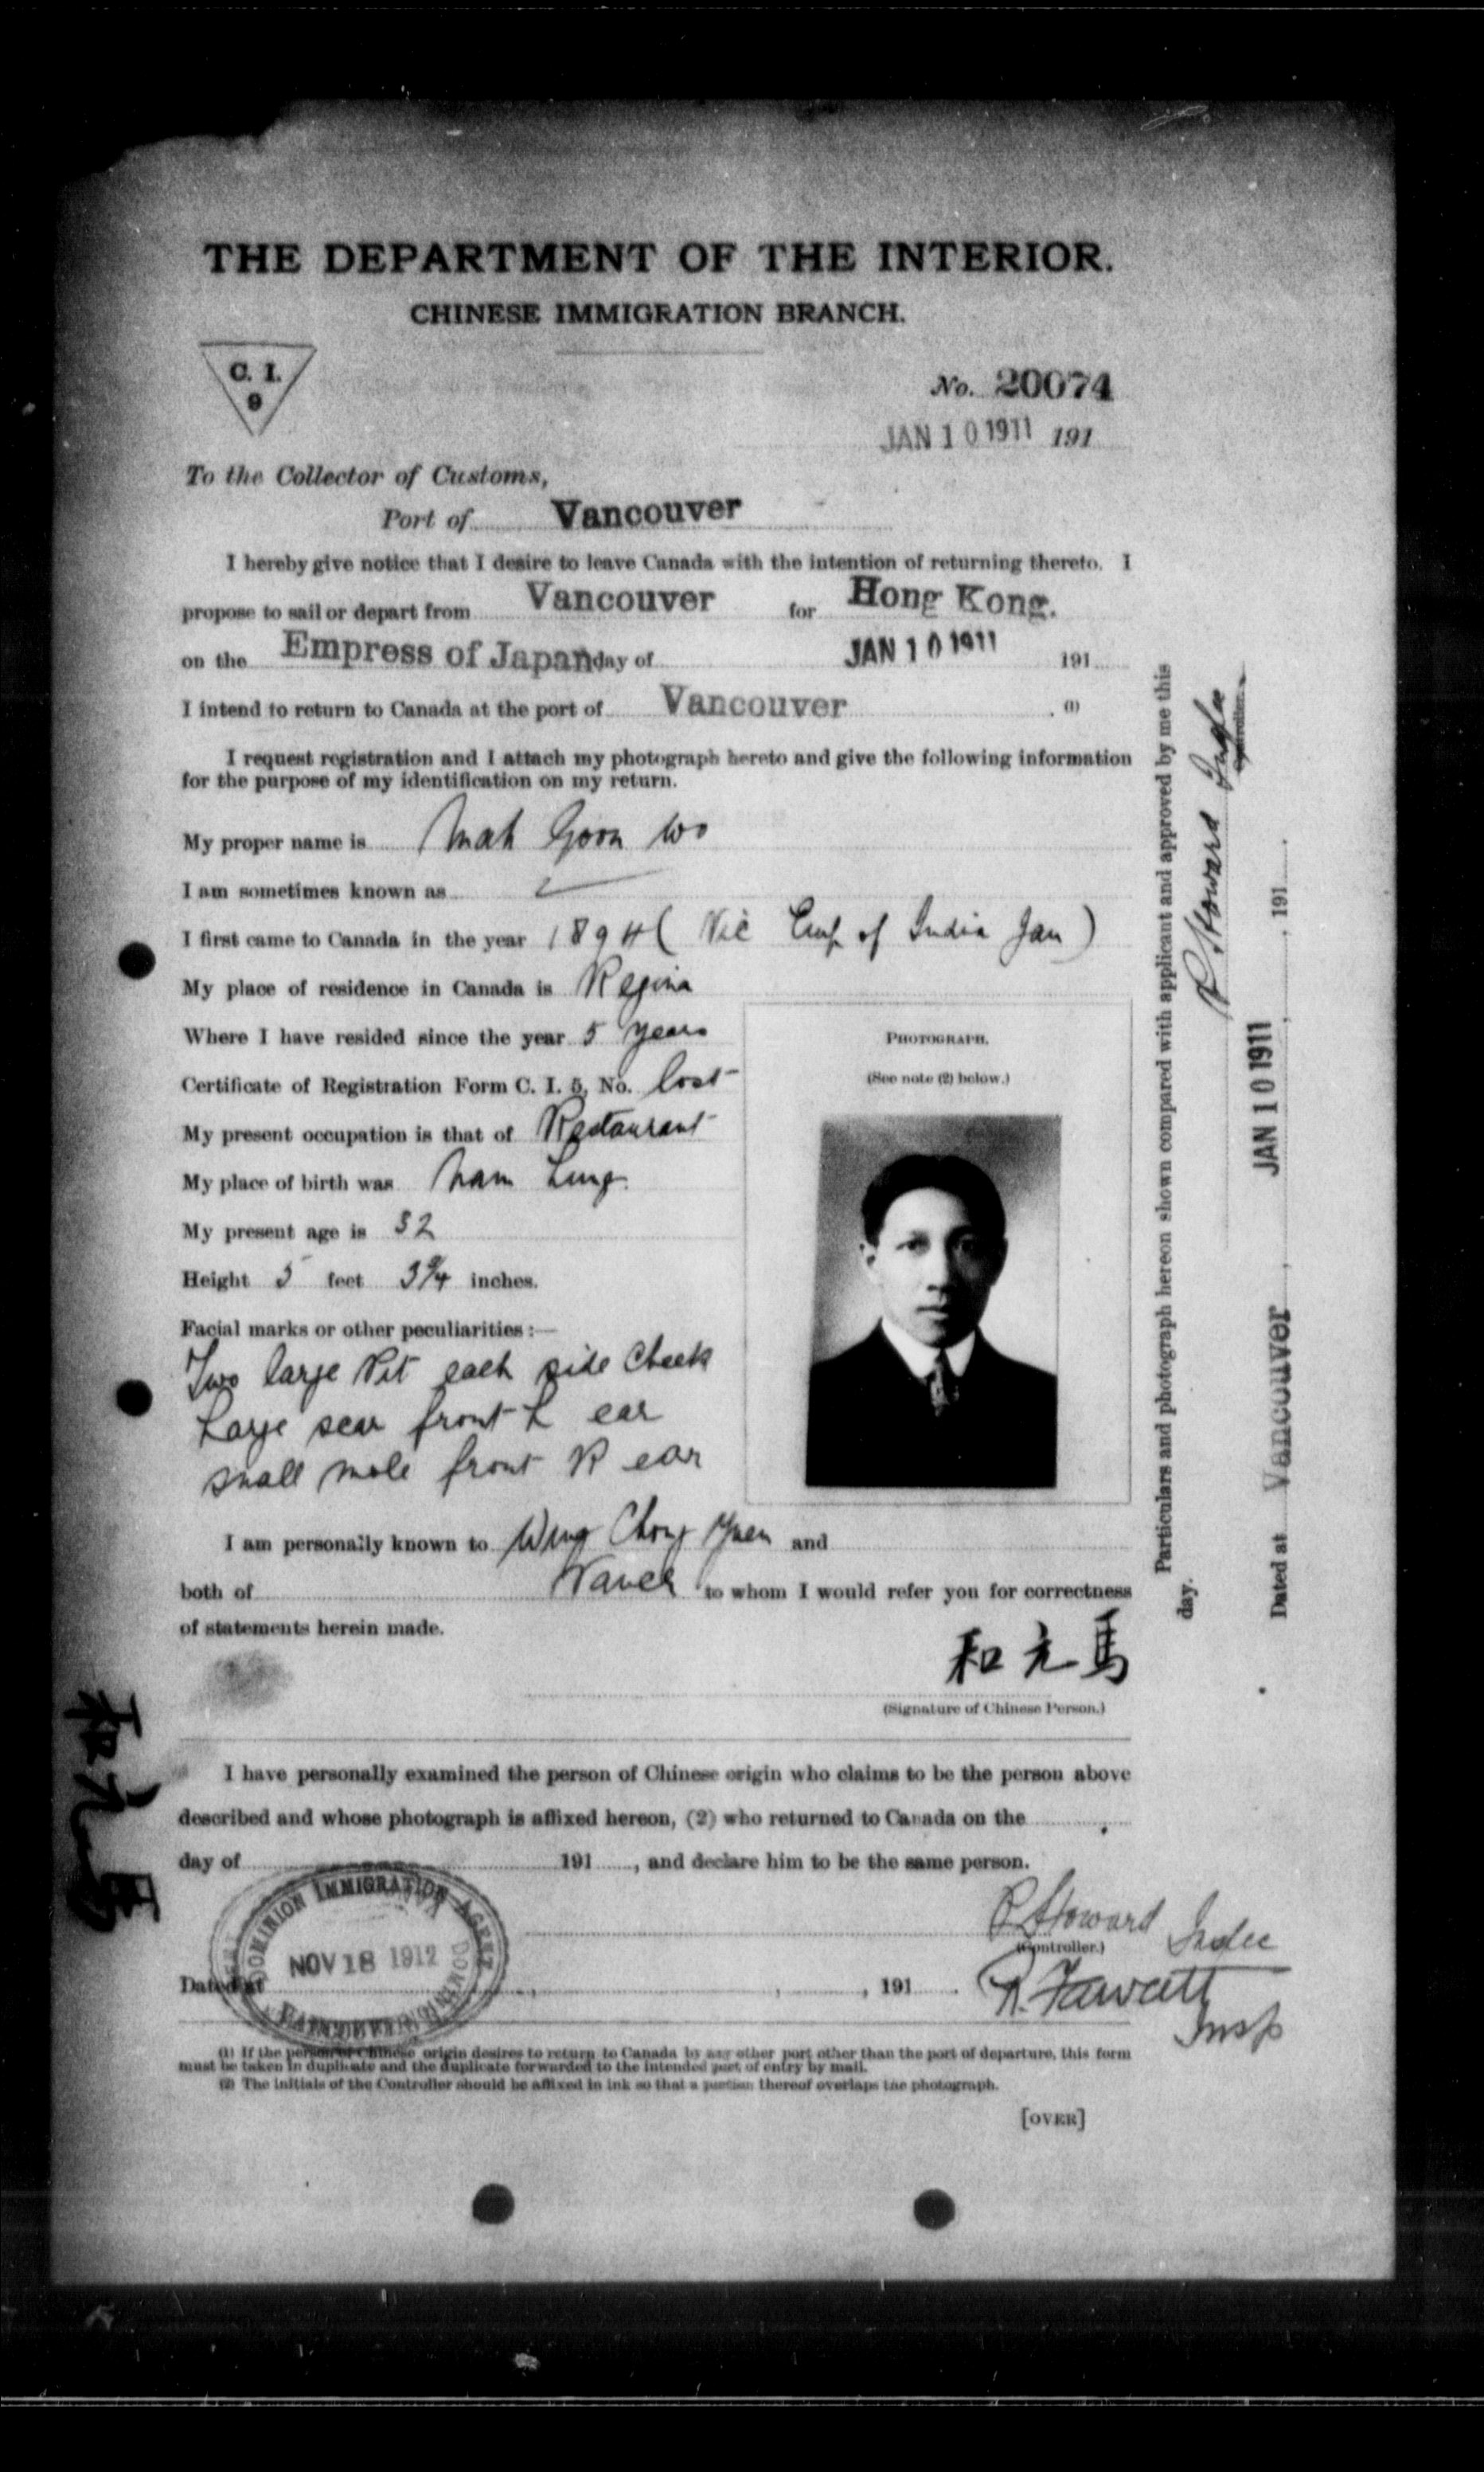 THE DEPARTMENT OF THE INTERIOR.
CHINESE IMMIGRATION BRANCH.
C. I.
9
No. 20074
JAN 10 1911 191
To the Collector of Customs,
Port of Vancouver
I hereby give notice that I desire to leave Canada with the intention of returning thereto. I
propose to sail or depart from Vancouver for Hong Kong.
on the Empress of Japan day of JAN 10 1911 191
I intend to return to Canada at the port of Vancouver . (1)
I request registration and I attach my photograph hereto and give the following information
for the purpose of my identification on my return.
My proper name is Mah Goon Wo
I am sometimes known as
I first came to Canada in the year 1894 ( Vic Emp of India Jan )
My place of residence in Canada is Regina
Where I have resided since the year 5 years
Certificate of Registration Form C. I. 5, No. lost
My present occupation is that of Restaurant
My place of birth was Nam Ling
My present age is 32
Height 5 feet 3 3/4 inches.
Facial marks or other peculiarities :—
Two large Pit each side Cheek
Large scar front L ear
small mole front R ear
PHOTOGRAPH.
(See note (2) below.)
I am personally known to Wing Chong Yuen and
both of Vancr to whom I would refer you for correctness
of statements herein made.
和元馬
(Signature of Chinese Person.)
I have personally examined the person of Chinese origin who claims to be the person above
described and whose photograph is affixed hereon, (2) who returned to Canada on the
day of 191 , and declare him to be the same person.
DOMINION IMMIGRATION AGENT
NOV 18 1912
(Controller.)
Dated at , 191 .
R. Fawcett
Insp
(1) If the person of Chinese origin desires to return to Canada by any other port other than the port of departure, this form
must be taken in duplicate and the duplicate forwarded to the intended port of entry by mail.
(2) The initials of the Controller should be affixed in ink so that a portion thereof overlaps the photograph.
[OVER]
Particulars and photograph hereon shown compared with applicant and approved by me this
day.
Controller.
Dated at Vancouver , JAN 10 1911 , 191 .
和元馬